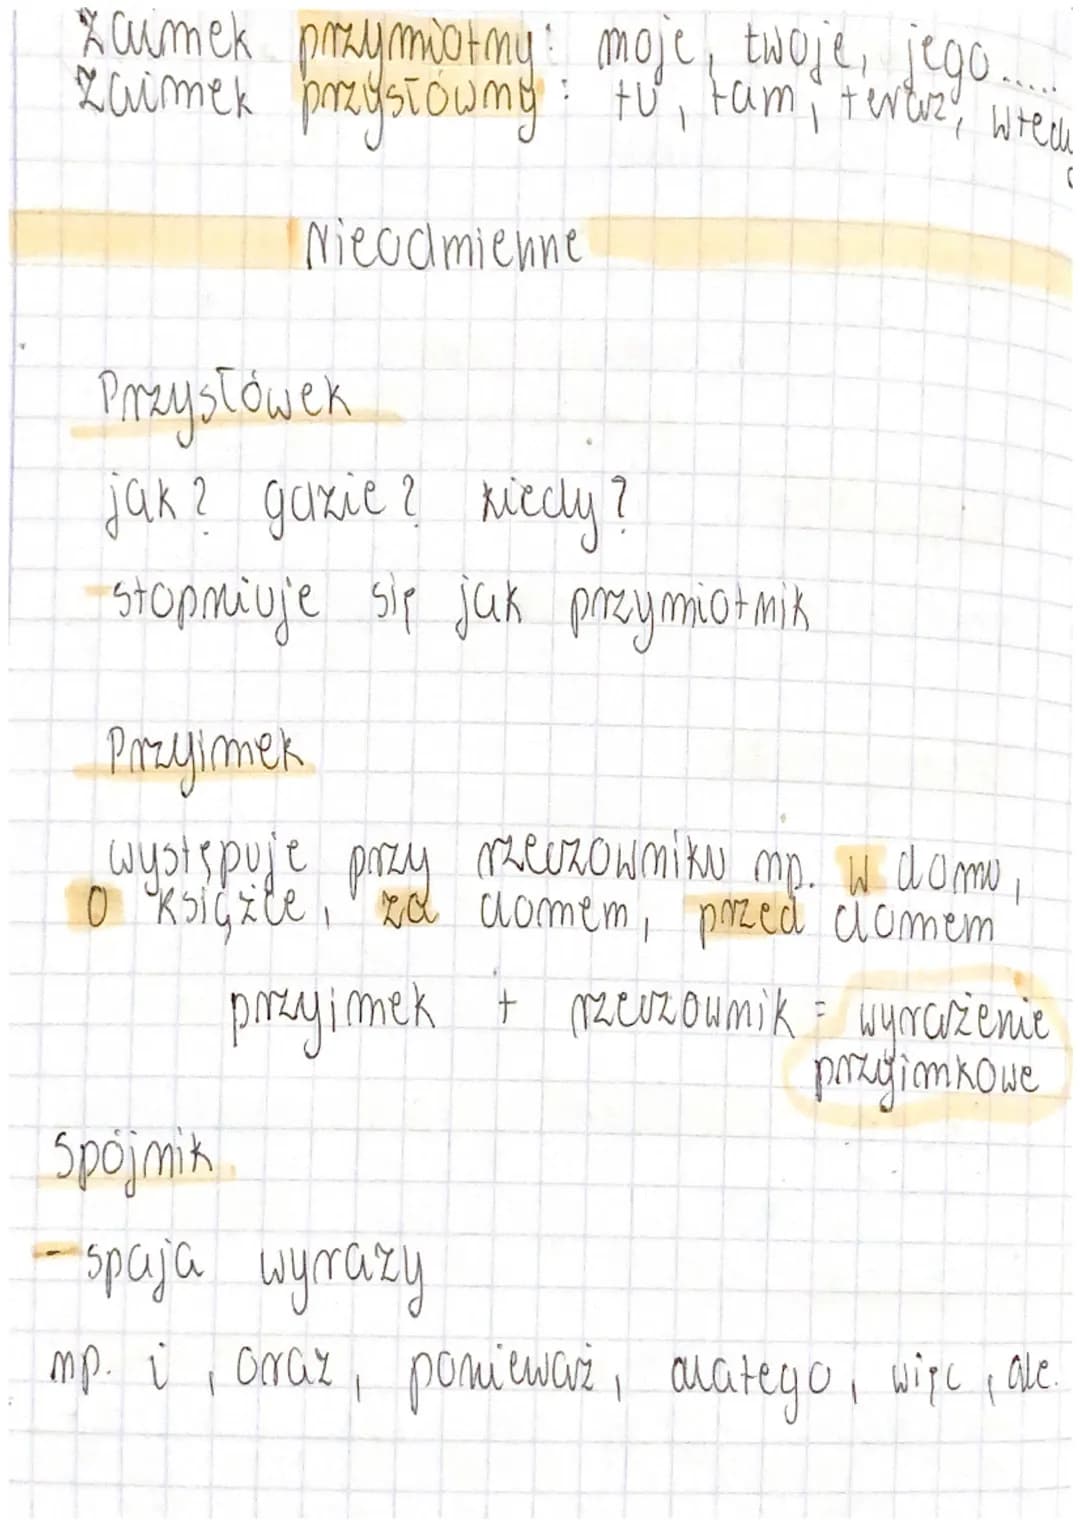 Zaimek przymiotny: moje, twoje, jego.....
Zaimek przysłówny: tu, tam, teraz, wtedy
Nieodmienne
Przysłówek
jak? gdzie? kiedy?
-stopniuje się jak przymiotnik
Przyimek
występuje przy rzeczowniku np. w domu,
o książce, za domem, przed domem
przyjmek + rzeczownik = wyrażenie
przyimkowe
Spójnik
- spaja wyrazy
np. i, oraz, ponieważ, dlatego, więc, ale.